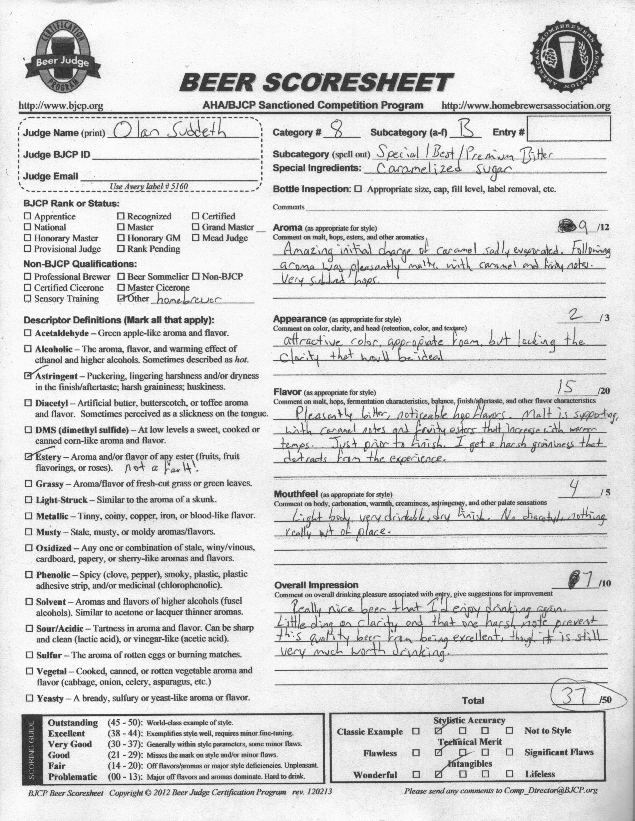 CERTIFICATION
Beer Judge
PROGRAM
AMERICAN HOMEBREWERS ASSOCIATION
BEER SCORESHEET
http://www.bjcp.org AHA/BJCP Sanctioned Competition Program http://www.homebrewersassociation.org
Judge Name (print) Olan Suddeth
Judge BJCP ID
Judge Email
Use Avery label # 5160
BJCP Rank or Status:
Apprentice Recognized Certified
National Master Grand Master
Honorary Master Honorary GM Mead Judge
Provisional Judge Rank Pending
Non-BJCP Qualifications:
Professional Brewer Beer Sommelier Non-BJCP
Certified Cicerone Master Cicerone
Sensory Training Other homebrewer
Descriptor Definitions (Mark all that apply):
Acetaldehyde – Green apple-like aroma and flavor.
Alcoholic – The aroma, flavor, and warming effect of
ethanol and higher alcohols. Sometimes described as hot.
Astringent – Puckering, lingering harshness and/or dryness
in the finish/aftertaste; harsh graininess; huskiness.
Diacetyl – Artificial butter, butterscotch, or toffee aroma
and flavor. Sometimes perceived as a slickness on the tongue.
DMS (dimethyl sulfide) – At low levels a sweet, cooked or
canned corn-like aroma and flavor.
Estery – Aroma and/or flavor of any ester (fruits, fruit
flavorings, or roses). not a fault!
Grassy – Aroma/flavor of fresh-cut grass or green leaves.
Light-Struck – Similar to the aroma of a skunk.
Metallic – Tinny, coiny, copper, iron, or blood-like flavor.
Musty – Stale, musty, or moldy aromas/flavors.
Oxidized – Any one or combination of stale, winy/vinous,
cardboard, papery, or sherry-like aromas and flavors.
Phenolic – Spicy (clove, pepper), smoky, plastic, plastic
adhesive strip, and/or medicinal (chlorophenolic).
Solvent – Aromas and flavors of higher alcohols (fusel
alcohols). Similar to acetone or lacquer thinner aromas.
Sour/Acidic – Tartness in aroma and flavor. Can be sharp
and clean (lactic acid), or vinegar-like (acetic acid).
Sulfur – The aroma of rotten eggs or burning matches.
Vegetal – Cooked, canned, or rotten vegetable aroma and
flavor (cabbage, onion, celery, asparagus, etc.)
Yeasty – A bready, sulfury or yeast-like aroma or flavor.
Category # 8 Subcategory (a-f) B Entry #
Subcategory (spell out) Special/Best/Premium Bitter
Special Ingredients: Caramelized sugar
Bottle Inspection: Appropriate size, cap, fill level, label removal, etc.
Comments
Aroma (as appropriate for style) 9 /12
Comment on malt, hops, esters, and other aromatics
Amazing initial charge of caramel sadly evaporated. Following
aroma was pleasantly malty, with caramel and fruity notes.
Very subdued hops.
Appearance (as appropriate for style) 2 /3
Comment on color, clarity, and head (retention, color, and texture)
attractive color, appropriate foam, but lacking the
clarity that would be ideal
Flavor (as appropriate for style) 15 /20
Comment on malt, hops, fermentation characteristics, balance, finish/aftertaste, and other flavor characteristics
Pleasantly bitter, noticeable hop flavors. Malt is supporting,
with caramel notes and fruity esters that increase with warmer
temps. Just prior to finish, I get a harsh graininess that
detracts from the experience.
Mouthfeel (as appropriate for style) 4 /5
Comment on body, carbonation, warmth, creaminess, astringency, and other palate sensations
Light body, very drinkable, dry finish. No diacetyl, nothing
really out of place.
Overall Impression 7 /10
Comment on overall drinking pleasure associated with entry, give suggestions for improvement
Really nice beer that I'd enjoy drinking again.
Little ding on clarity and that one harsh note prevent
this quality beer from being excellent, though it is still
very much worth drinking.
Total 37 /50
SCORING GUIDE
Outstanding (45 - 50): World-class example of style.
Excellent (38 - 44): Exemplifies style well, requires minor fine-tuning.
Very Good (30 - 37): Generally within style parameters, some minor flaws.
Good (21 - 29): Misses the mark on style and/or minor flaws.
Fair (14 - 20): Off flavors/aromas or major style deficiencies. Unpleasant.
Problematic (00 - 13): Major off flavors and aromas dominate. Hard to drink.
Stylistic Accuracy
Classic Example Not to Style
Technical Merit
Flawless Significant Flaws
Intangibles
Wonderful Lifeless
BJCP Beer Scoresheet Copyright © 2012 Beer Judge Certification Program rev. 120213 Please send any comments to Comp_Director@BJCP.org